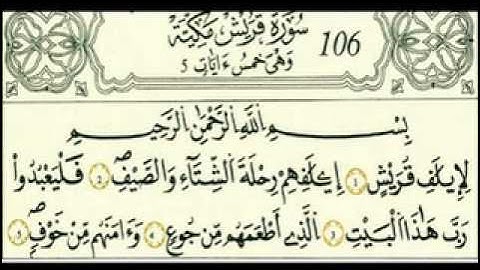 سُورَةُ قُرَيْشٍ مَكِّيَّة 106
وَهْيَ خَمْسُ ءَايَاتٍ 5
بِسْمِ اِللَّهِ اِلرَّحْمَٰنِ اِلرَّحِيمِ
لِإِيلَٰفِ قُرَيْشٍ 1 إِۦلَٰفِهِمْ رِحْلَةَ اَلشِّتَآءِ وَالصَّيْفِۖ 2 فَلْيَعْبُدُواْ
رَبَّ هَٰذَا اَلْبَيْتِ 3 اِلَّذِے أَطْعَمَهُم مِّن جُوعٍ 4 وَءَامَنَهُم مِّنْ خَوْفٍۖ 5